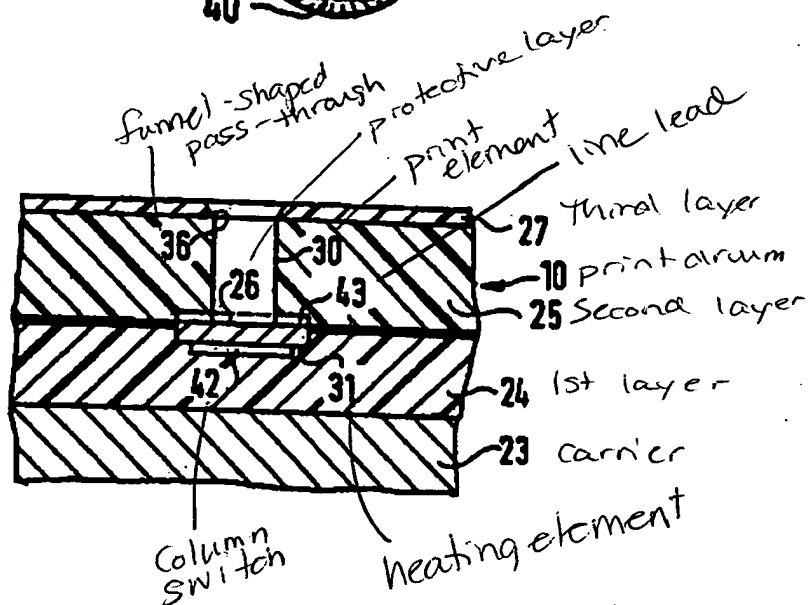 40
funnel-shaped
pass-through
protective layer
print
element
line lead
27 Third layer
36
30
10 print drum
26
43
25 Second layer
42
31
24 1st layer
23 carrier
Column
switch
heating element